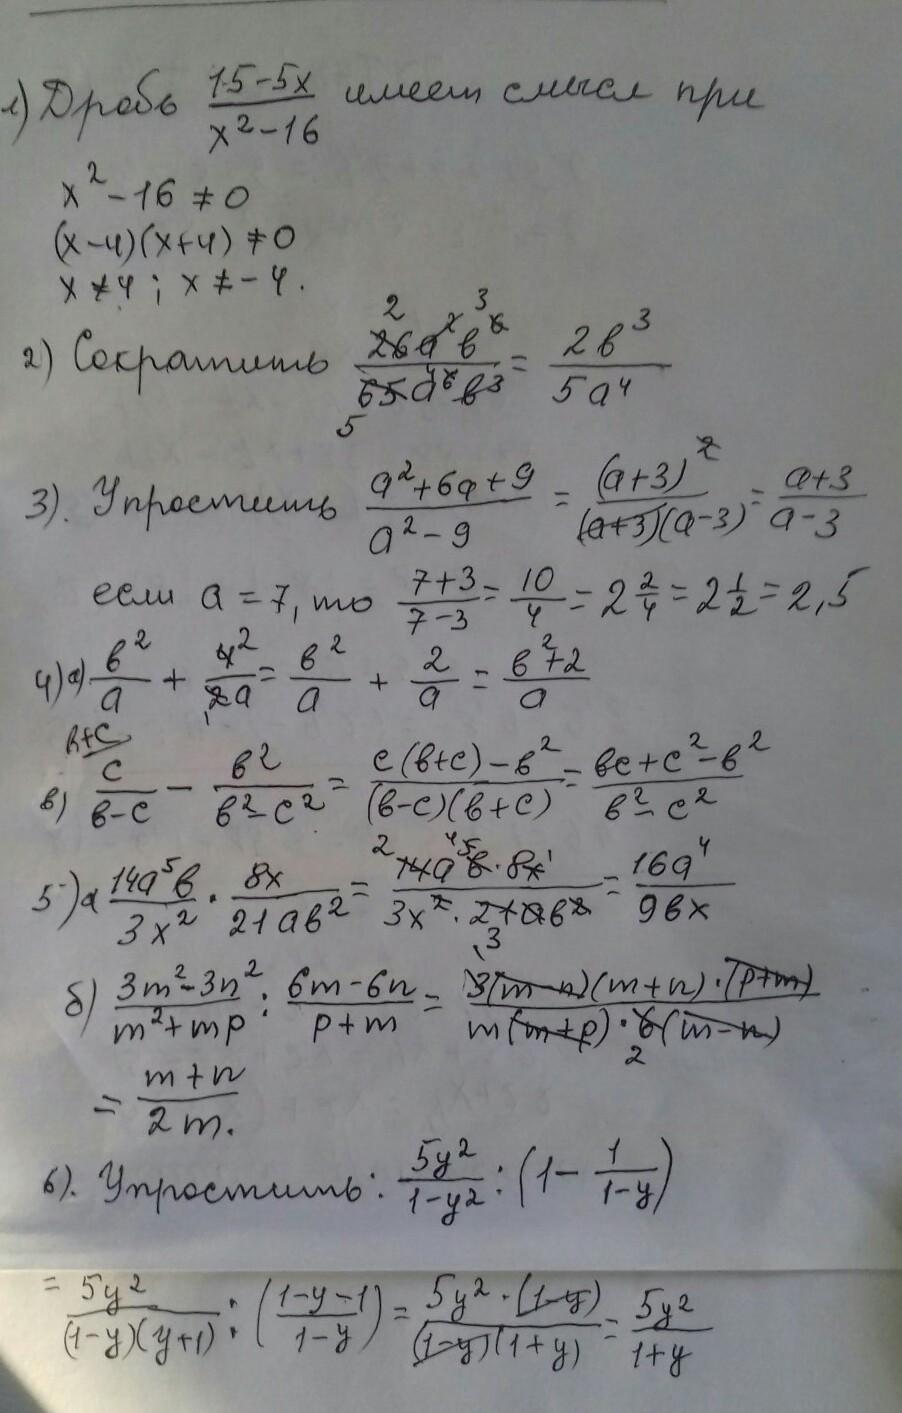 1) Дробь (15-5x)/(x²-16) имеет смысл при
x²-16 ≠ 0
(x-4)(x+4) ≠ 0
x ≠ 4 ; x ≠ -4.
2) Сократить 26a²b⁶/65a⁶b³ = 2b³/5a⁴
3). Упростить (a²+6a+9)/(a²-9) = (a+3)²/(a+3)(a-3) = (a+3)/(a-3)
если a = 7, то (7+3)/(7-3) = 10/4 = 2 2/4 = 2 1/2 = 2,5
4) а) b²/a + 4/2a = b²/a + 2/a = (b²+2)/a
в) c/(b-c) - b²/(b²-c²) = (c(b+c)-b²)/((b-c)(b+c)) = (bc+c²-b²)/(b²-c²)
5) а 14a⁵b/3x² · 8x/21ab² = 14a⁵b·8x/3x²·21ab² = 16a⁴/9bx
б) (3m²-3n²)/(m²+mp) : (6m-6n)/(p+m) = 3(m-n)(m+n)·(p+m)/m(m+p)·6(m-n)
= (m+n)/2m.
6). Упростить: 5y²/(1-y²) : (1 - 1/(1-y))
= 5y²/(1-y)(y+1) : ((1-y-1)/(1-y)) = 5y²·(1-y)/(1-y)(1+y) = 5y²/(1+y)